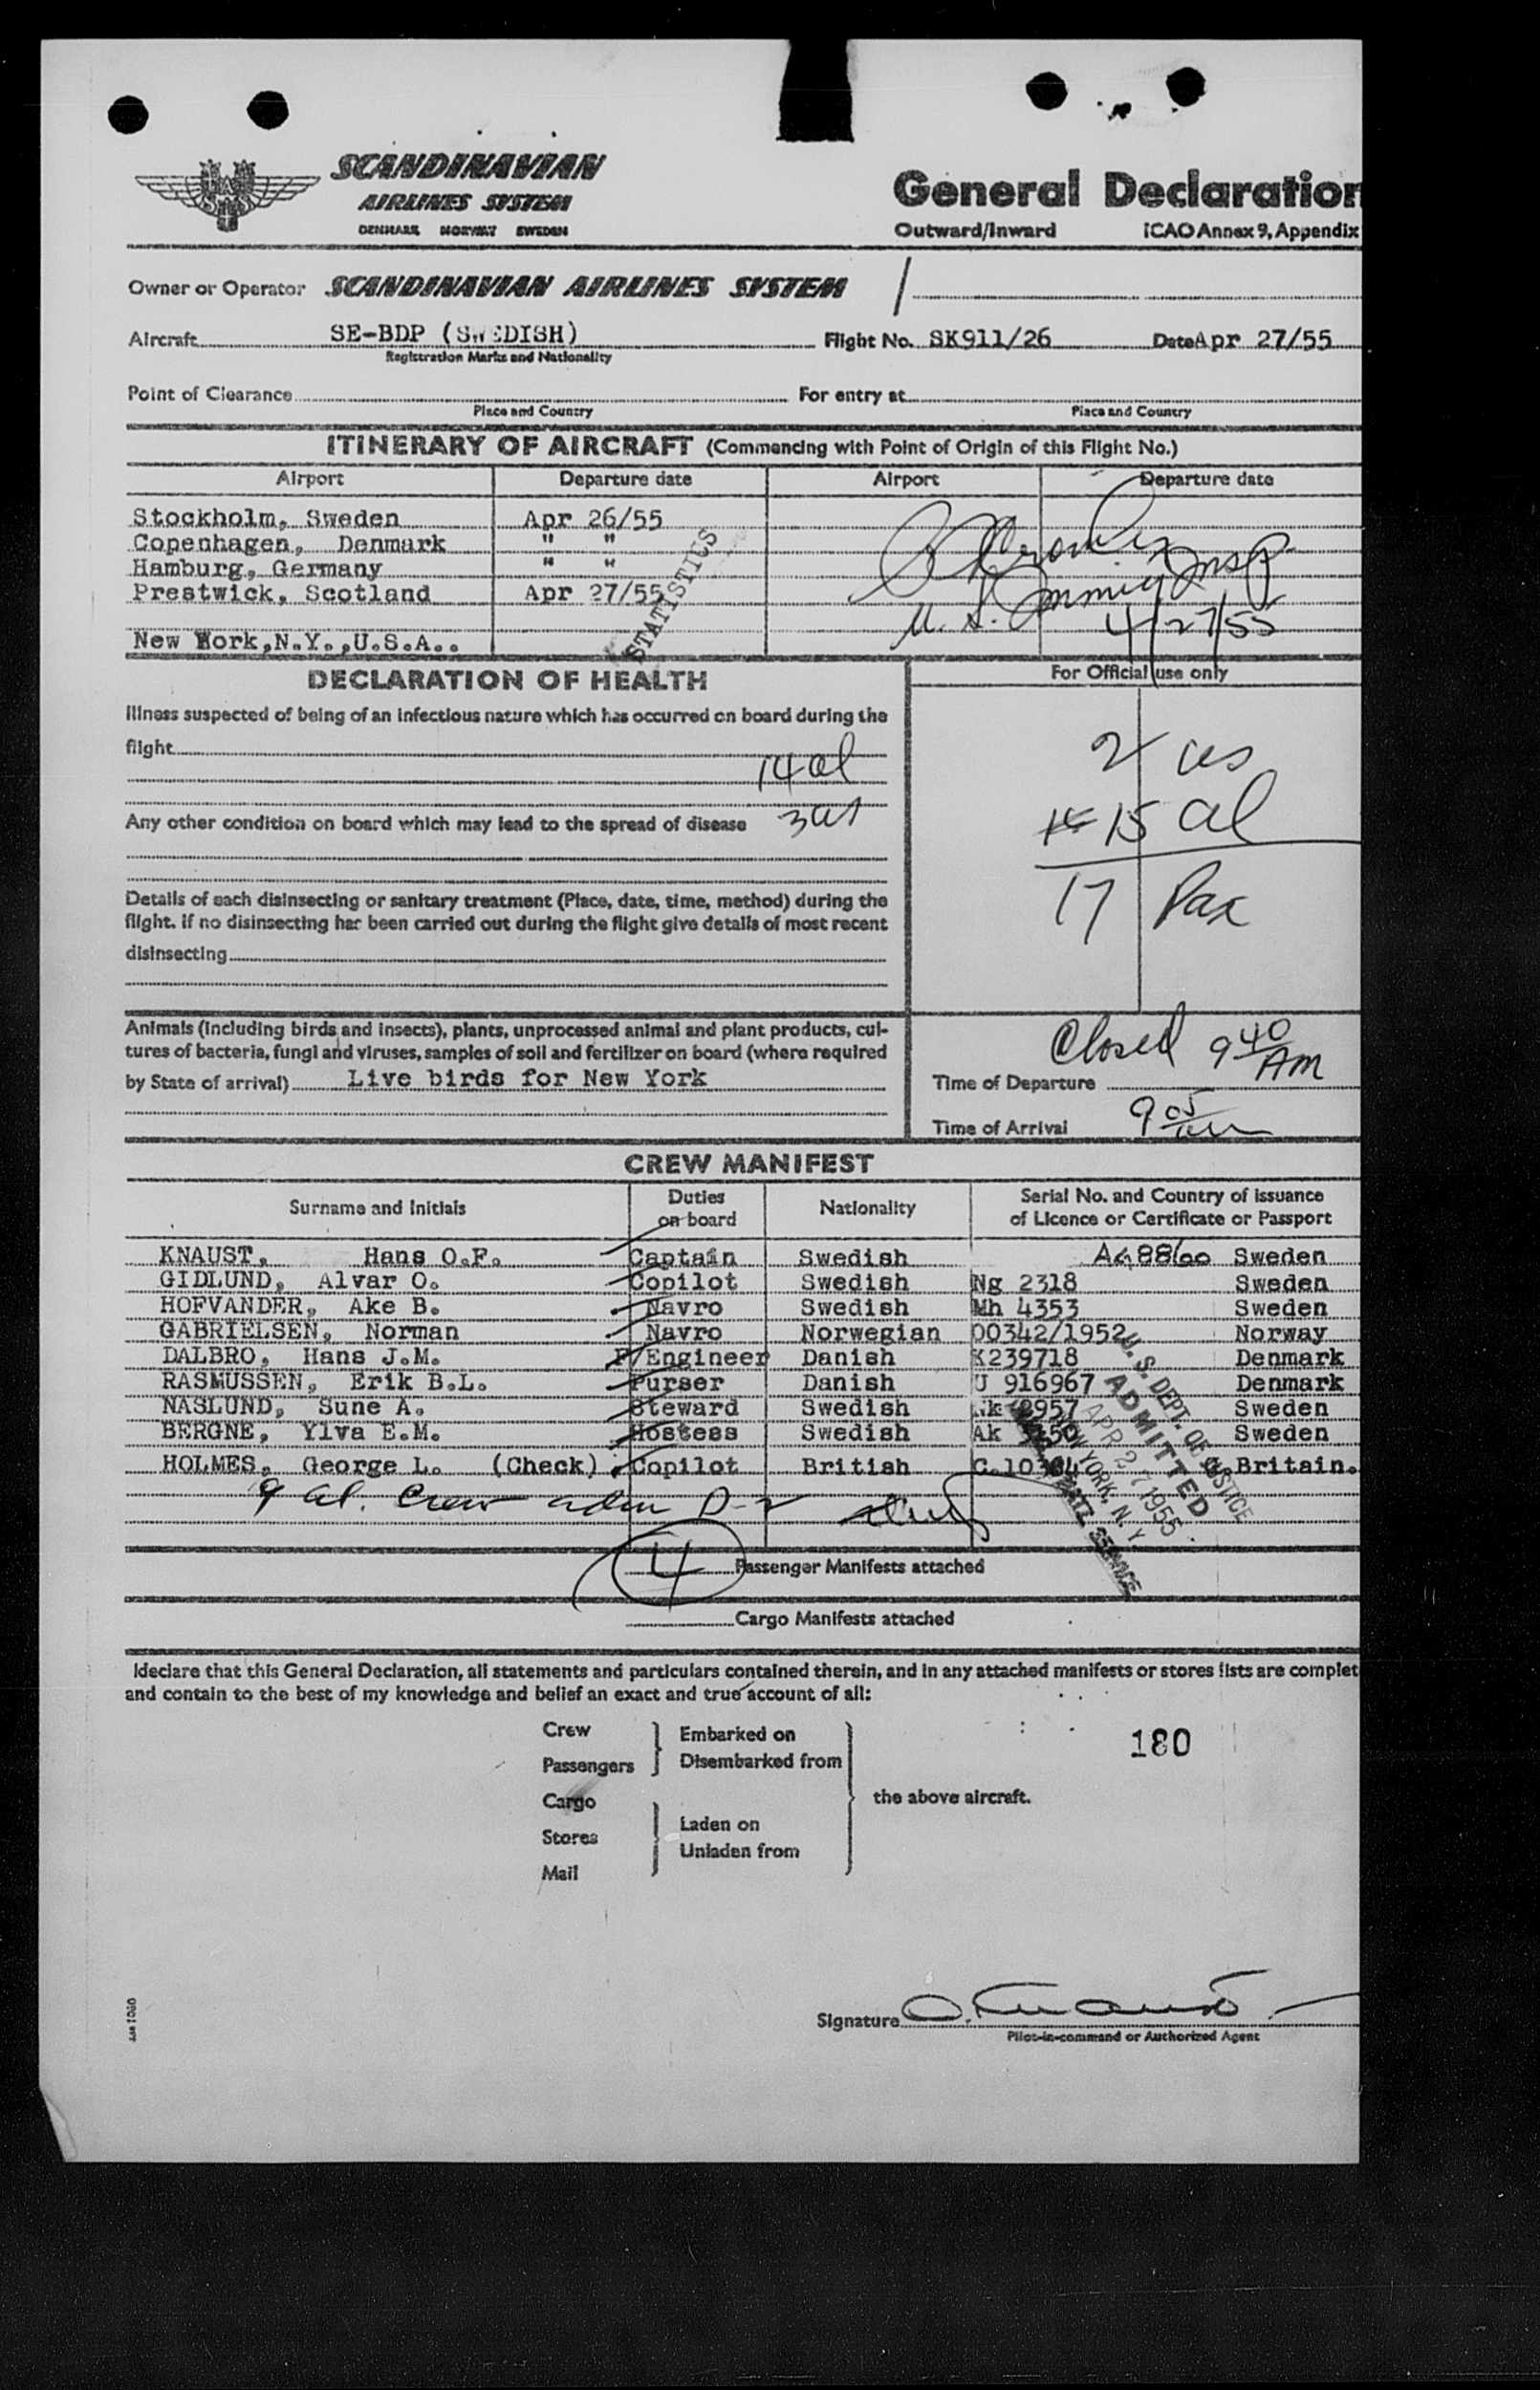 SCANDINAVIAN
AIRLINES SYSTEM
DENMARK NORWAY SWEDEN
General Declaration
Outward/Inward ICAO Annex 9, Appendix
Owner or Operator SCANDINAVIAN AIRLINES SYSTEM
Aircraft SE-BDP (SWEDISH) Flight No. SK911/26 Date Apr 27/55
Registration Marks and Nationality
Point of Clearance For entry at
Place and Country Place and Country
ITINERARY OF AIRCRAFT (Commencing with Point of Origin of this Flight No.)
Airport Departure date Airport Departure date
Stockholm, Sweden Apr 26/55
Copenhagen, Denmark " "
Hamburg, Germany " "
Prestwick, Scotland Apr 27/55
New York,N.Y.,U.S.A..
STATISTICS
U.S. Immig Insp
4/27/55
DECLARATION OF HEALTH
For Official use only
Illness suspected of being of an infectious nature which has occurred on board during the
flight
14 al
Any other condition on board which may lead to the spread of disease
2 us
15 al
17 Pax
Details of each disinsecting or sanitary treatment (Place, date, time, method) during the
flight. If no disinsecting has been carried out during the flight give details of most recent
disinsecting
Animals (including birds and insects), plants, unprocessed animal and plant products, cul-
tures of bacteria, fungi and viruses, samples of soil and fertilizer on board (where required
by State of arrival) Live birds for New York
Closed 9 40 AM
Time of Departure
Time of Arrival 9 05
CREW MANIFEST
Surname and Initials Duties on board Nationality Serial No. and Country of issuance of Licence or Certificate or Passport
KNAUST, Hans O.F. Captain Swedish Sweden
GIDLUND, Alvar O. Copilot Swedish Ng 2318 Sweden
HOFVANDER, Ake B. Navro Swedish Mh 4353 Sweden
GABRIELSEN, Norman Navro Norwegian 00342/1952 Norway
DALBRO, Hans J.M. F/Engineer Danish K239718 Denmark
RASMUSSEN, Erik B.L. Purser Danish U 916967 Denmark
NASLUND, Sune A. Steward Swedish Sweden
BERGNE, Ylva E.M. Hostess Swedish Ak Sweden
HOLMES, George L. (Check) Copilot British Britain.
U. S. DEPT. OF JUSTICE
ADMITTED
APR 27 1955
NEW YORK, N. Y.
9 al. Crew adm D-2
4 Passenger Manifests attached
Cargo Manifests attached
I declare that this General Declaration, all statements and particulars contained therein, and in any attached manifests or stores lists are complet
and contain to the best of my knowledge and belief an exact and true account of all:
Crew Embarked on
Passengers Disembarked from
180
Cargo the above aircraft.
Stores Laden on
Unladen from
Mail
Signature O. Knaust
Pilot-in-command or Authorized Agent